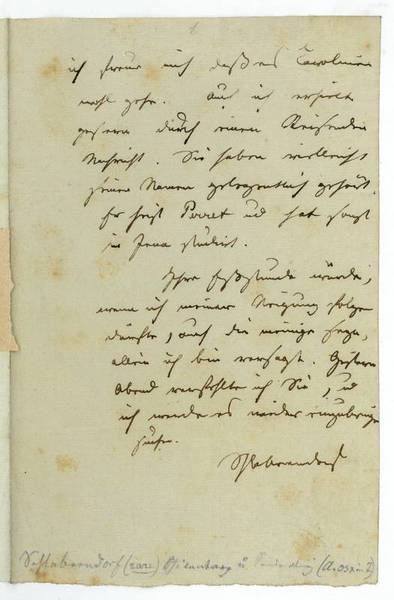 ich freue mich daß es Carolinen
wohl gehe. Auch ich erhielt
gestern durch einen Reisenden
Nachricht. Sie haben vielleicht
seinen Namen gelegentlich gehört.
Er heißt Perret und hat sonst
in Jena studirt.
Ihre Eßstunde würde,
wenn ich meiner Neigung folgen
dürfte, auch die meinige seyn,
allein ich bin versagt. Gestern
Abend verfehlte ich Sie, und
ich werde es wieder einzubringen
suchen.
Schlabrendorf
Schlabrendorf (rare)